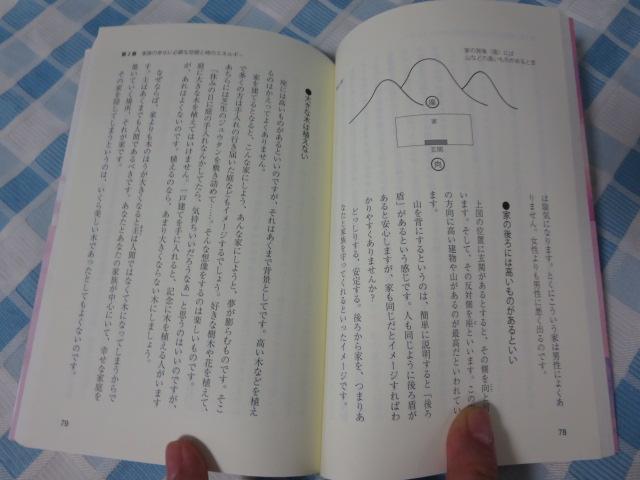 家の背後（座）には
山などの高いものがあるとき
座
家
玄関
向
は陰気になります。とくにこういう家は男性によくあ
りません。女性よりも男性に悪く出るのです。
●家の後ろには高いものがあるといい
上図の位置に玄関があるとすると、その側を向と
います。そして、その反対側を座といいます。この
の方向に高い建物や山があるのが最高だといわれてい
ます。
山を背にするというのは、簡単に説明すると「後ろ
盾」があるという感じです。人も同じように後ろ盾が
あると安心しますが、家も同じだとイメージすればわ
かりやすくありませんか？
どっしりする、安定する。後ろから家を、つまりあ
なたと家族を守ってくれるといったイメージです。
78
第2章 家族の幸せに必要な空間と時のエネルギー
●大きな木は植えない
座には高いものがあるといいのですが、それはあくまで背景としてです。高い木などを植え
るのはかえってよくありません。
家を建てるとなると、こんな家にしよう、あんな家にしようと、夢が膨らむものです。そこ
で多くの方は手入れの行き届いた庭などもイメージするでしょう。好きな樹木や花を植えて、
あちらには芝生のジュウタンを敷き詰めて……。そんな想像をするのは楽しいものです。
「休みの日に庭の手入れなんかしてたら、気持ちいいだろうなぁ」と思うのはいいのですが、
庭に大きな木を植えてはいけません。一戸建てを手に入れると、記念に木を植える人がいます
が、あれはよくないのです。植えるのなら、あまり大きくならない木にしましょう。
なぜならば、家よりも木のほうが大きくなると主は人間ではなくて木になってしまうからで
す。主はあくまでも人間であるべきです。あなたとあなたの家族が中心にいて、幸せな家庭を
築いていく場所、それが家です。
その家を隠してしまうというのは、いくら美しい木であったとしてもよくないのです。
79